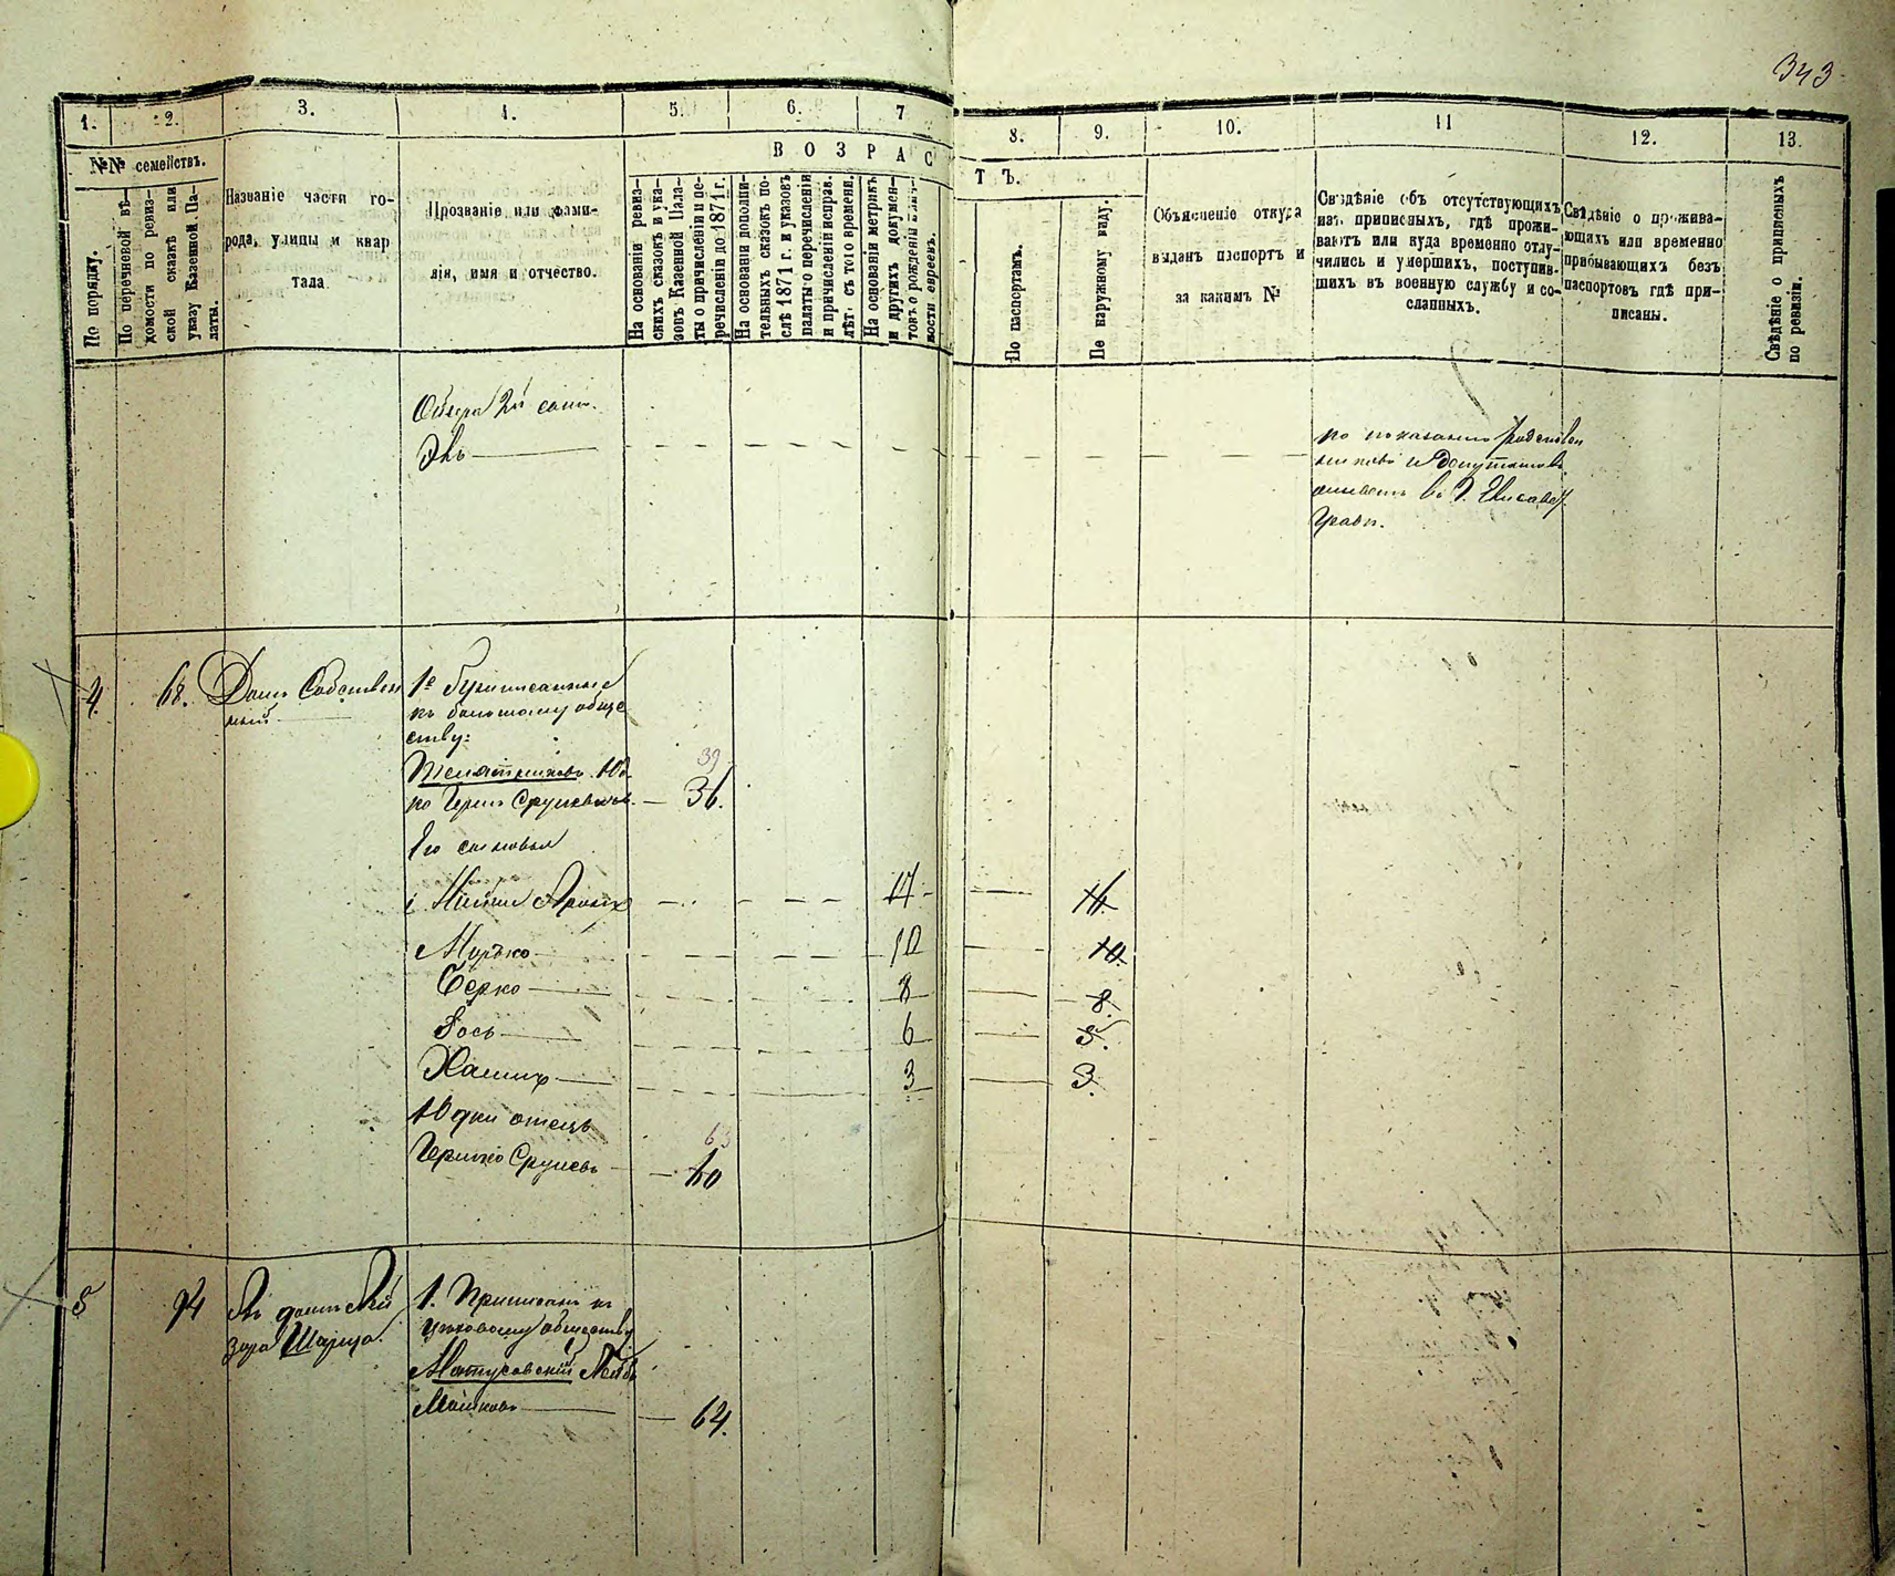 343
1.
2.
3.
4.
5.
6.
7
8.
9.
10.
11
12.
13.
№№ семействъ.
ВОЗРАС
ТЪ.
По порядку.
По перечневой вѣ-
домости по ревиз-
ской сказкѣ или
указу Казенной Па-
латы.
Названіе части го-
рода, улицы и квар
тала
Прозваніе или фами-
лія, имя и отчество.
На основаніи ревиз-
скихъ сказокъ и ука-
зовъ Казенной Пала-
ты о причисленіи и пе-
речисленіи до 1871 г.
На основаніи дополни-
тельныхъ сказокъ по-
слѣ 1871 г. и указовъ
палаты о перечисленіи
и причисленіи исправ.
лѣт. съ того времени.
На основаніи метрикъ
и другихъ докумен-
товъ о рожденіи
ности евреевъ.
По паспортамъ.
По наружному виду.
Объясненіе откуда
выданъ паспортъ и
за какимъ №
Свѣдѣніе объ отсутствующихъ
изъ приписныхъ, гдѣ прожи-
ваютъ или куда временно отлу-
чились и умершихъ, поступив-
шихъ въ военную службу и со-
сланныхъ.
Свѣдѣніе о прожива-
ющихъ или временно
прибывающихъ безъ
паспортовъ гдѣ при-
писаны.
Свѣдѣніе о приписныхъ
по ревизіи.
по показанію родствен
никовъ и депутатовъ
живетъ въ г. Елисавет
градѣ.
4. 68. Домъ Собствен
ный
1е Приписанные
къ бывшому обще
ству:
39
36.
Его сыновья
17 14
Мордко 10 10
Берко 8 8.
Іось 6 5.
Хаимъ 3 3.
Юдки отецъ
63
Гершко Срулевъ 60
5 94 Въ домѣ Лей
зора Шварца.
1. Приписанъ къ
цеховому обществу
Матусовскій Лейба
Мошковъ 64.